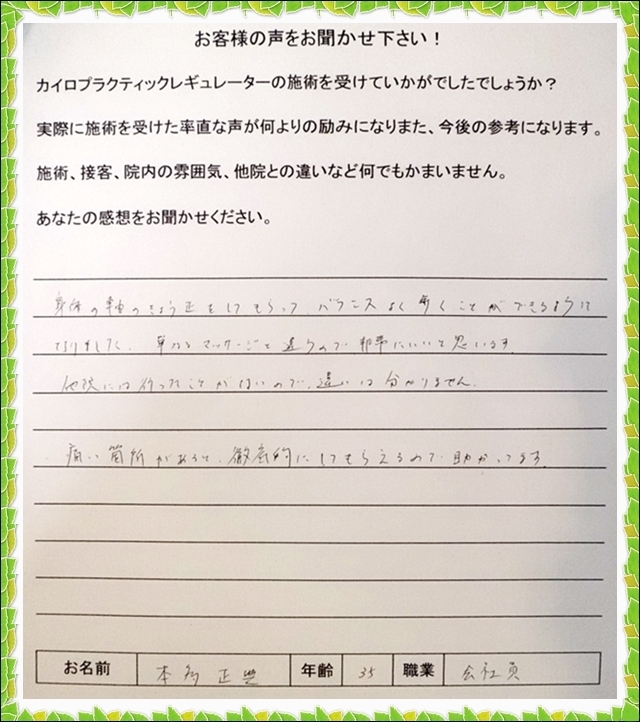 お客様の声をお聞かせ下さい！
カイロプラクティックレギュレーターの施術を受けていかがでしたでしょうか？
実際に施術を受けた率直な声が何よりの励みになりまた、今後の参考になります。
施術、接客、院内の雰囲気、他院との違いなど何でもかまいません。
あなたの感想をお聞かせください。
身体の軸のきょう正をしてもらって、バランスよく歩くことができるように
なりました。単なるマッサージと違うので非常にいいと思います。
他院には行ったことがないので、違いは分かりません。
痛い箇所があると、徹底的にしてもらえるので助かってます。
お名前 本多 正 年齢 35 職業 会社員